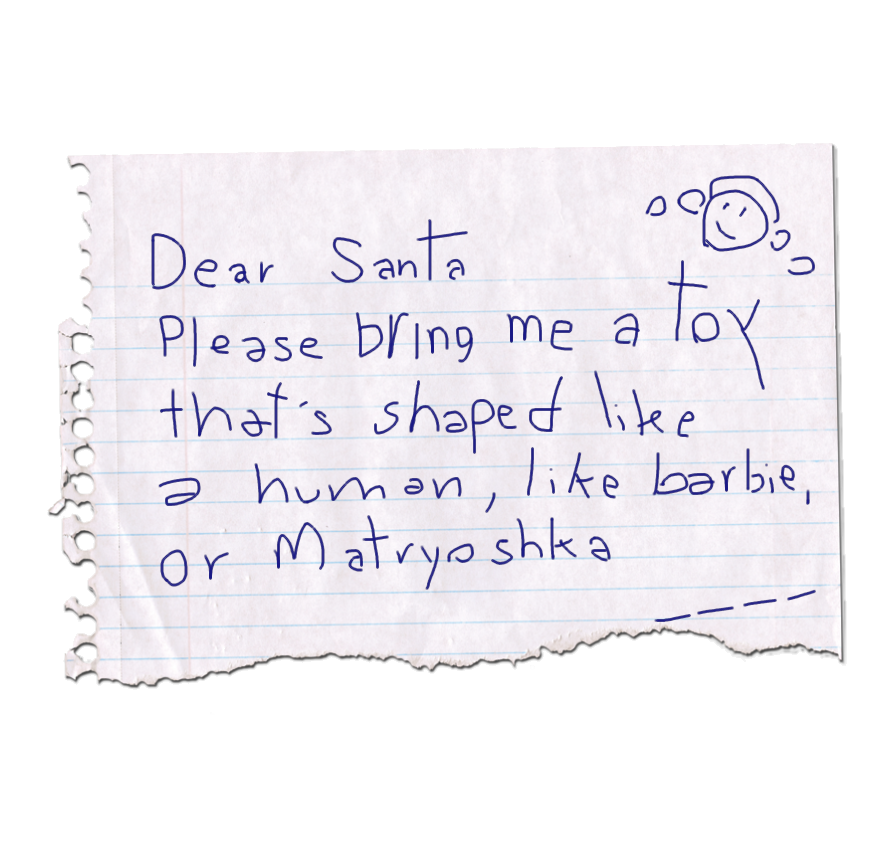 Dear Santa
Please bring me a toy
that's shaped like
a human, like barbie,
or Matryoshka